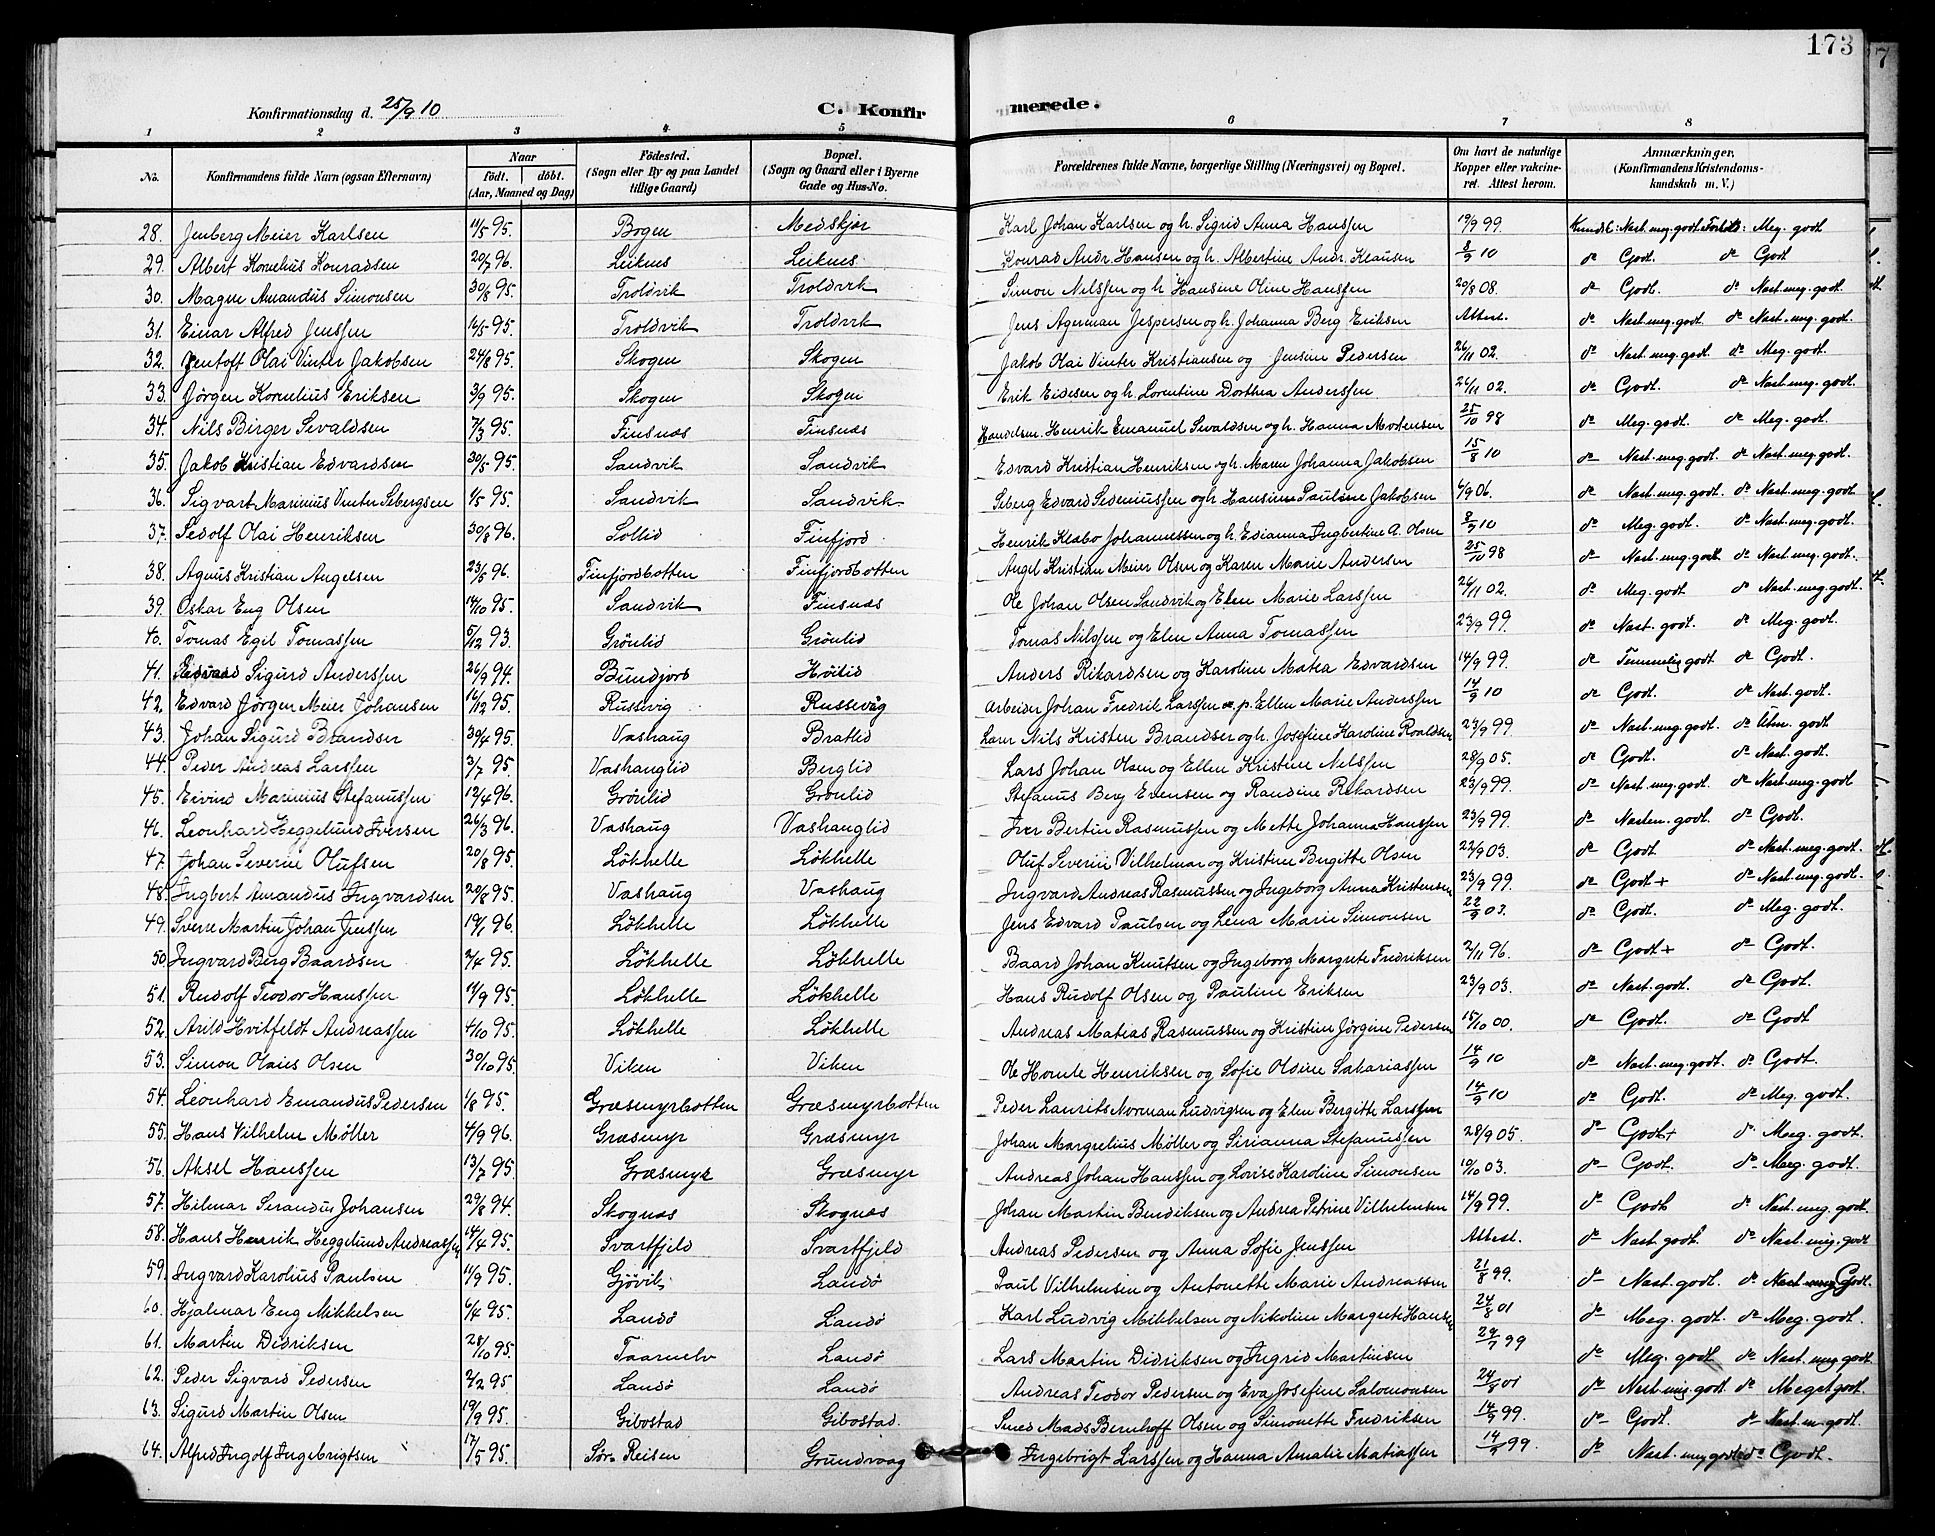 173
Konfirmationsdag d. 25/9 10 C. Konfirmerede.
1 2 3 4 5 6 7 8
No. Konfirmandens fulde Navn (ogsaa Efternavn) Naar Født. døbt. (Aar, Maaned og Dag) Fødested. (Sogn eller By og paa Landet tillige Gaard) Bopæl. (Sogn og Gaard eller i Byerne Gade og Hus-No. Forældrenes fulde Navne, borgerlige Stilling (Næringsvei) og Bopæl. Om havt de naturlige Kopper eller vakcineret. Attest herom. Anmærkninger, (Konfirmandens Kristendomskundskab m. V.)
28. Jenberg Meier Karlsen 11/5 95. Bogen Medskjær Karl Johan Karlsen og h. Sigrid Anna Hanssen 19/9 99. Kundsk: Næst. meg. godt. Forhold: Meg. godt
29. Albert Kornelius Konradsen 20/7 96. Leiknes Leiknes Konrad Andr. Hansen og h. Albertine Andr. Klausen 8/9 10 do Godt. do Godt
30. Magne Amandus Simonsen 30/8 95. Troldvik Troldvik Simon Nilssen og h. Hansine Oline Hanssen 20/8 08. do Godt. do Næst. meg. godt.
31. Einar Alfred Jenssen 16/5 95. Troldvik Troldvik Jens Agerman Jespersen og h. Johanna Berg Eriksen Attest. do Næst. meg. godt. do Næst. meg. godt.
32. Jentoft Olai Vinter Jakobsen 24/8 95. Skogen Skogen Jakob Olai Vinter Kristiansen og Jensine Pedersen 26/11 02. do Næst. meg. godt. do Meg. godt.
33. Jörgen Kornelius Eriksen 3/9 95. Skogen Skogen Erik Eidesen og h. Lorentine Dorthea Anderssen 26/11 02. do Godt. do Næst. meg. godt.
34. Nils Birger Sivaldsen 7/3 95. Finsnæs Finsnæs Handelsm. Henrik Emanuel Sivaldsen og h. Hanna Mortensen 25/10 98 do Meg. godt. do Meg. godt.
35. Jakob Kristian Edvardsen 30/5 95. Sandvik Sandvik Edvard Kristian Henriksen og h. Maren Johanna Jakobsen 15/8 10 do Næst. meg. godt. do Næst. meg. godt.
36. Sigvart Marinius Vinter Sebergsen 1/5 95. Sandvik Sandvik. Seberg Edvard Sedeniussen og h. Hansine Pauline Jakobsen 4/9 06. do Næst. meg. godt. do Næst. meg. godt.
37. Sedolf Olai Henriksen 30/8 96. Sollid Finfjord Henrik Klæbo Johannessen og h. Edianna Ingbertine A. Olsen 8/9 10 do Meg. godt. do Næst. meg. godt.
38. Agnus Kristian Angelsen 23/5 96. Finfjordbotten Finfjordbotten Angel Kristian Meier Olsen og Karen Marie Andersen 25/10 98 do Næst. meg. godt do Næst. meg. godt.
39. Oskar Eng Olsen 14/10 95. Sandvik Finsnæs Ole Johan Olsen Sandvik og Elen Marie Larssen 26/11 02. do Meg. godt. do Næst. meg. godt.
40. Tomas Egil Tomassen 5/12 93. Grönlid Grönlid Tomas Nilssen og Elen Anna Tomassen 23/9 99. do Næst. godt. do Meg. godt.
41. Edvard Sigurd Anderssen 26/9 94. Bundjord Höilid Anders Rikardsen og Karoline Matea Edvardsen 14/9 99. do Temmelig godt do Godt.
42. Edvard Jörgen Meier Johansen 16/12 95. Russevig Russevåg Arbeider Johan Fredrik Larssen og p. Ellen Marie Anderssen 14/9 10 do Godt. do Næst. godt.
43. Johan Sigurd Brandser 30/4 95. Vashaug Bratlid Lærer Nils Kristen Brandser og h. Josefine Karoline Roaldsen 23/9 99. do Næst. meg. godt. do Utm. godt.
44. Peder Andreas Larssen 3/7 95. Vashauglid Berglid Lars Johan Olsen og Ellen Kristine Nilssen 28/9 05. do Godt. do Næst. godt.
45. Eivind Marinius Stefanussen 12/4 96. Grönlid Grönlid Stefanus Berg Evensen og Randine Rikardsen 23/9 99. do Næst. meg. godt. do Næst. meg. godt
46. Leonhard Heggelund Iversen 26/3 96. Vashaug Vashauglid Iver Bertin Rasmussen og Mette Johanna Hanssen 23/9 99. do Næsten. godt. do Godt.
47. Johan Severin Olufsen 20/8 95. Løkhelle Løkhelle Oluf Severin Vilhelmar og Kristine Birgitte Olsen 22/9 03. do Godt. do Næst. meg. godt.
48. Ingbert Amandus Ingvardsen 20/8 95. Vashaug Vashaug Ingvard Andreas Rasmussen og Ingeborg Anna Kristensen 23/9 99. do Godt + do Næst. meg. godt.
49. Sverre Martin Johan Jenssen 19/1 96. Løkhelle Løkhelle Jens Edvard Paulsen og Lena Marie Simonsen 22/9 03. do Godt. do Meg. godt.
50. Ingvard Berg Baardsen 2/4 95. Løkhelle Løkhelle Baard Johan Knutsen og Ingeborg Margrete Fredriksen 2/11 96. do Godt + do Godt.
51. Rudolf Teodor Hanssen 11/9 95. Løkhelle Løkhelle Hans Rudolf Olsen og Pauline Eriksen 23/9 03. do Næst. godt. do Godt.
52. Arild Hvitfeldt Andreassen 4/10 95. Løkhelle Løkhelle Andreas Matias Rasmussen og Kristine Jörgine Pedersen 15/10 00. do Godt. do Godt.
53. Simon Olaus Olsen 30/10 95. Viken Viken Ole Homle Henriksen og Sofie Oldine Sakariassen 14/9 10 do Næst. meg. godt. do Godt.
54. Leonhard Emandus Pedersen 1/8 95. Græsmyrbotten Græsmyrbotten Peder Laurits Norman Ludvigsen og Elen Birgitte Larssen 14/9 10 do Godt. do Meg. godt.
55. Hans Vilhelm Møller 4/9 96. Græsmyr Græsmyr Johan Margrelius Møller og Sirianna Stefanussen 28/9 05. do Godt + do Meg. godt.
56. Aksel Hanssen 13/7 95. Græsmyr Græsmyr Andreas Johan Hanssen og Lovise Karoline Simonsen 10/10 03. do Godt. do Meg. godt.
57. Hilmar Serandus Johansen 29/8 94. Skognæs Skognæs Johan Martin Bendiksen og Andrea Petrine Vilhelmsen 14/9 99. do Godt do Næst. meg. godt.
58. Hans Henrik Heggelund Andreassen 14/4 95. Svartfjeld Svartfjeld Andreas Pedersen og Anna Sofie Jenssen Attest. do Næst. godt. do Næst. meg. godt
59. Ingvard Karolius Paulsen 11/9 95. Gjövik Landø Paul Vilhelmsen og Antonette Marie Andreassen 21/8 99. do Næst. godt. do Godt.
60. Hjalmar Eng Mikkelsen 4/4 95. Landø Landø Karl Ludvig Mikkelsen og Nikoline Margrete Hansen 24/8 01 do Meg. godt. do Meg. godt.
61. Martin Didriksen 28/10 95. Taarnelv Landø Lars Martin Didriksen og Ingrid Martinsen 24/7 99 do Meg. godt do Næst. meg. godt
62. Peder Sigvard Pedersen 2/2 95 Landø Landø Andreas Teodor Pedersen og Eva Josefine Salomonsen 24/8 01 do Næst. meg. godt. do Meget godt.
63. Sigurd Martin Olsen 19/9 95. Gibostad Gibostad. Smed Mads Bernhoff Olsen og Simonette Fredriksen 14/9 99. do Godt. do Næst. m. godt.
64. Alfred Ingolf Ingebrigtsen 17/5 95. Sør-Reisen Grundvaag Ingebrigt Larssen og Hanna Amalie Matiassen 14/9 99. do Næst. meg. godt do Godt.